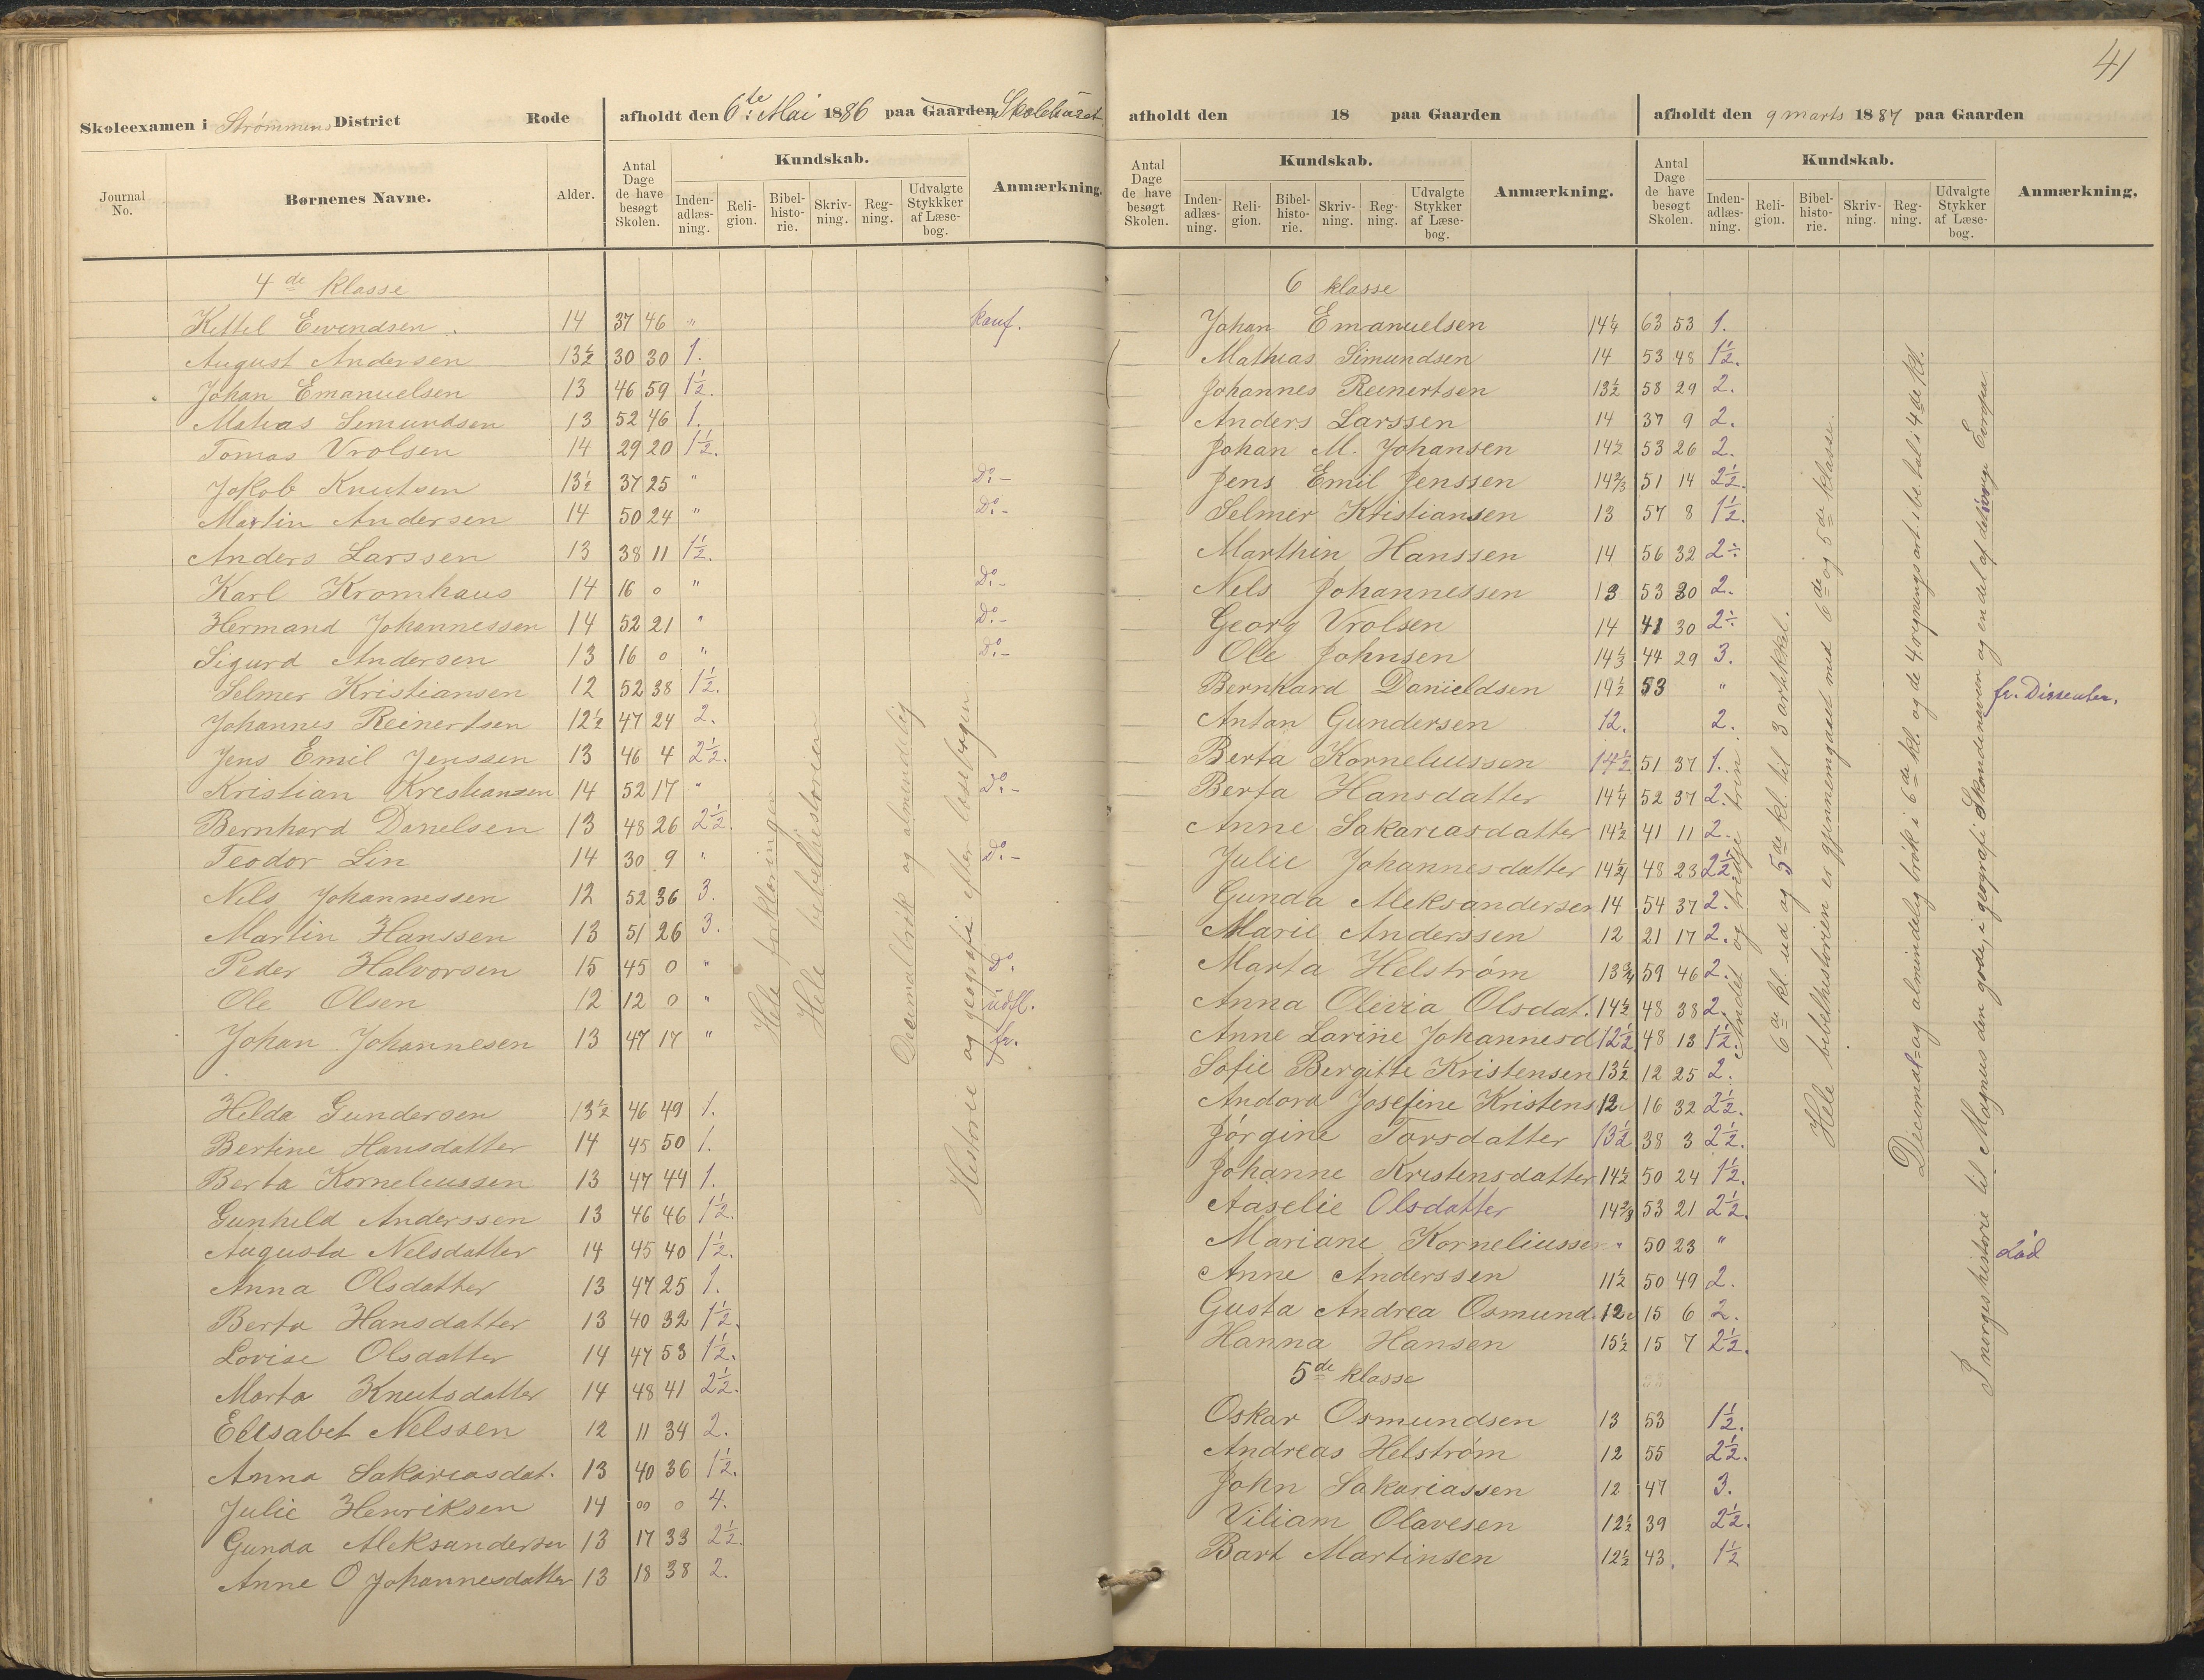 41
Skoleexamen i Strømmens District Rode afholdt den 6te Mai 1886 paa Gaarden Skolehuset
Journal No. Børnenes Navne. Alder. Antal Dage de have besøgt Skolen. Kundskab. Indenadlæsning. Religion. Bibelhistorie. Skrivning. Regning. Udvalgte Stykkker af Læsebog. Anmærkning.
4de klasse
Kittel Eivendsen 14 37 46 " konf.
August Andersen 13½ 30 30 1.
Johan Emanuelsen 13 46 59 1½.
Mathias Simundsen 13 52 46 1.
Tomas Vrolsen 14 29 20 1½.
Jakob Knutsen 13½ 37 25 " Do.-
Martin Andersen 14 50 24 " Do.-
Anders Larssen 13 38 11 1½.
Karl Kromhaus 14 16 0 " Do.-
Hermand Johannessen 14 52 21 " Do.-
Sigurd Andersen 13 16 0 " Do.-
Selmer Kristiansen 12 52 38 1½.
Johannes Reinertsen 12½ 47 24 2.
Jens Emil Jenssen 13 46 4 2½.
Kristian Kristiansen 14 52 17 " Do.-
Bernhard Danelsen 13 48 26 2½.
Teodor Lin 14 30 9 " Do.-
Nils Johannessen 12 52 36 3.
Martin Hanssen 13 51 26 3.
Peder Halvorsen 15 45 0 " Do.
Ole Olsen 12 12 0 " udfl.
Johan Johannesen 13 47 17 " fr.
Hilda Gundersen 13½ 46 49 1.
Bertine Hansdatter 14 45 50 1.
Berta Korneliussen 13 47 44 1.
Gunhild Anderssen 13 46 46 1½.
Augusta Nelsdatter 14 45 40 1½.
Anna Olsdatter 13 47 25 1.
Berta Hansdatter 13 40 32 1½.
Lovise Olsdatter 14 47 53 1½.
Marta Knutsdatter 14 48 41 2½.
Elisabet Nelssen 12 11 34 2.
Anna Sakariasdat. 13 40 36 1½.
Julie Henriksen 14 00 0 4.
Gunda Aleksandersen 13 17 33 2½.
Anne O Johannesdatter 13 18 38 2.
Hele forklaringen
Hele bibelhistorien
Decimalbrøk og almindelig
Historie og geografi efter læsebogen.
afholdt den 18 paa Gaarden
Antal Dage de have besøgt Skolen. Kundskab. Indenadlæsning. Religion. Bibelhistorie. Skrivning. Regning. Udvalgte Stykker af Læsebog. Anmærkning.
afholdt den 9 marts 1887 paa Gaarden
Antal Dage de have besøgt Skolen. Kundskab. Indenadlæsning. Religion. Bibelhistorie. Skrivning. Regning. Udvalgte Stykker af Læsebog. Anmærkning.
6 klasse
Johan Emanuelsen 14¼ 63 53 1.
Mathias Simundsen 14 53 48 1½.
Johannes Reinertsen 13½ 58 29 2.
Anders Larssen 14 37 9 2.
Johan M. Johansen 14½ 53 26 2.
Jens Emil Jenssen 14⅔ 51 14 2½.
Selmer Kristiansen 13 57 8 1½.
Marthin Hanssen 14 56 32 2÷
Nels Johannessen 13 53 30 2.
Georg Vrolsen 14 41 30 2÷
Ole Johnsen 14⅓ 44 29 3.
Bernhard Danieldsen 14½ 53 " fr. Dissenter.
Anton Gundersen 12. 2.
Berta Korneliussen 14½ 51 37 1.
Berta Hansdatter 14¼ 52 37 2.
Anne Sakariasdatter 14½ 41 11 2.
Julie Johannesdatter 14¼ 48 23 2½
Gunda Aleksandersen 14 54 37 2.
Marie Anderssen 12 21 17 2.
Marta Helstrøm 13¾ 59 46 2.
Anna Olevia Olsdat. 14½ 48 38 2.
Anne Larine Johannesd 12½ 48 13 1½.
Sofie Bergitte Kristensen 13½ 12 25 2.
Andora Josefine Kristens 12 16 32 2½.
Jørgine Torsdatter 13½ 38 3 2½.
Johanne Kristensdatter 14½ 50 24 1½.
Aaselie Olsdatter 14⅔ 53 21 2½.
Mariane Korneliussen " 50 23 " død
Anne Anderssen 11½ 50 49 2.
Gusta Andrea Osmund. 12 15 6 2.
Hanna Hansen 15½ 15 7 2½.
5de klasse
Oskar Osmundsen 13 53 1½.
Andreas Helstrøm 12 55 2½.
John Sakariassen 12 47 3.
Viliam Olavesen 12½ 39 2½.
Bart Martinsen 12½ 43. 1½
Andet og tredje trin
6de kl. ud og 5de kl. til 3 artikkel.
Hele bibelhistorien er gjennemgaaet med 6de og 5de klasse.
Decimal= og almindelig brøk i 6de kl. og de 4 regningsart. i be. tal i 4de kl.
I norges historie til Magnus den gode, i geografi Skandinavien og en del af det øvrige Europa.